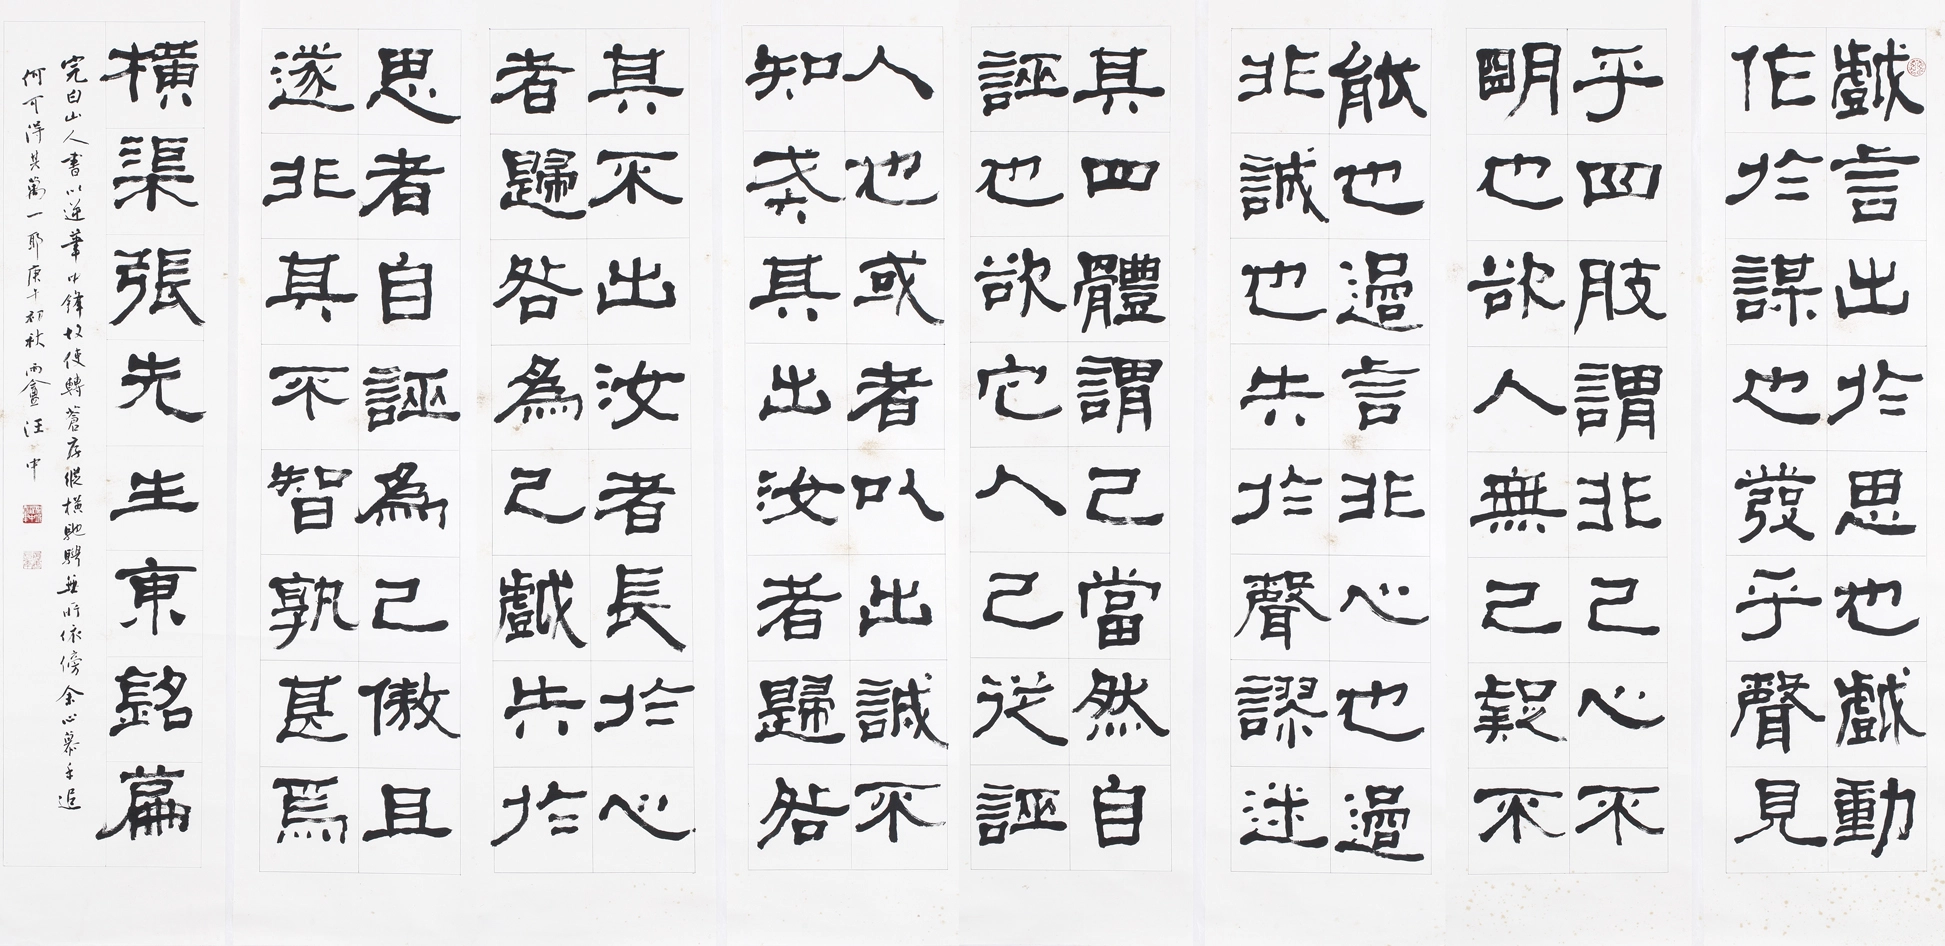 戲言出於思也戲動
作於謀也發乎聲見
乎四肢謂非己心不
明也欲人無己疑不
能也過言非心也過
非誠也失於聲謬迷
其四體謂己當然自
誣也欲它人己從誣
人也或者以出誠不
知戒其出汝者歸咎
其不出汝者長於心
者歸咎為己戲失於
思者自誣為己傲且
遂非其不智孰甚焉
橫渠張先生東銘篇
完白山人書以逆筆中鋒故使轉蒼茫縱橫馳騁無所依傍余心慕手追
何可得其萬一耶庚午初秋雨盦汪中